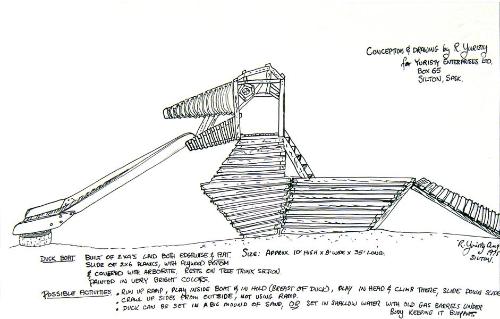 CONCEPTION & DRAWING by R. Yuristy
for YURISTY ENTERPRISES LTD.
BOX 65
SILTON, SASK.
R. Yuristy
SILTON.
DUCK BOAT BUILT OF 2X4'S LAID BOTH EDGEWISE & FLAT. SIZE: APPROX 10' HIGH X 8' WIDE X 35' LONG.
SLIDE OF 2X6 PLANKS, WITH PLYWOOD BOTTOM
& COVERED WITH ARBORITE, RESTS ON TREE TRUNK SECTION.
PAINTED IN VERY BRIGHT COLORS.
POSSIBLE ACTIVITIES . RUN UP RAMP, PLAY INSIDE BOAT & IN HOLD (BREAST OF DUCK), PLAY IN HEAD & CLIMB THERE, SLIDE DOWN SLIDE
. CRAWL UP SIDES FROM OUTSIDE, NOT USING RAMP.
. DUCK CAN BE SET IN A BIG MOUND OF SAND, OR SET IN SHALLOW WATER WITH OLD GAS BARRELS UNDER
BODY KEEPING IT BUOYANT.